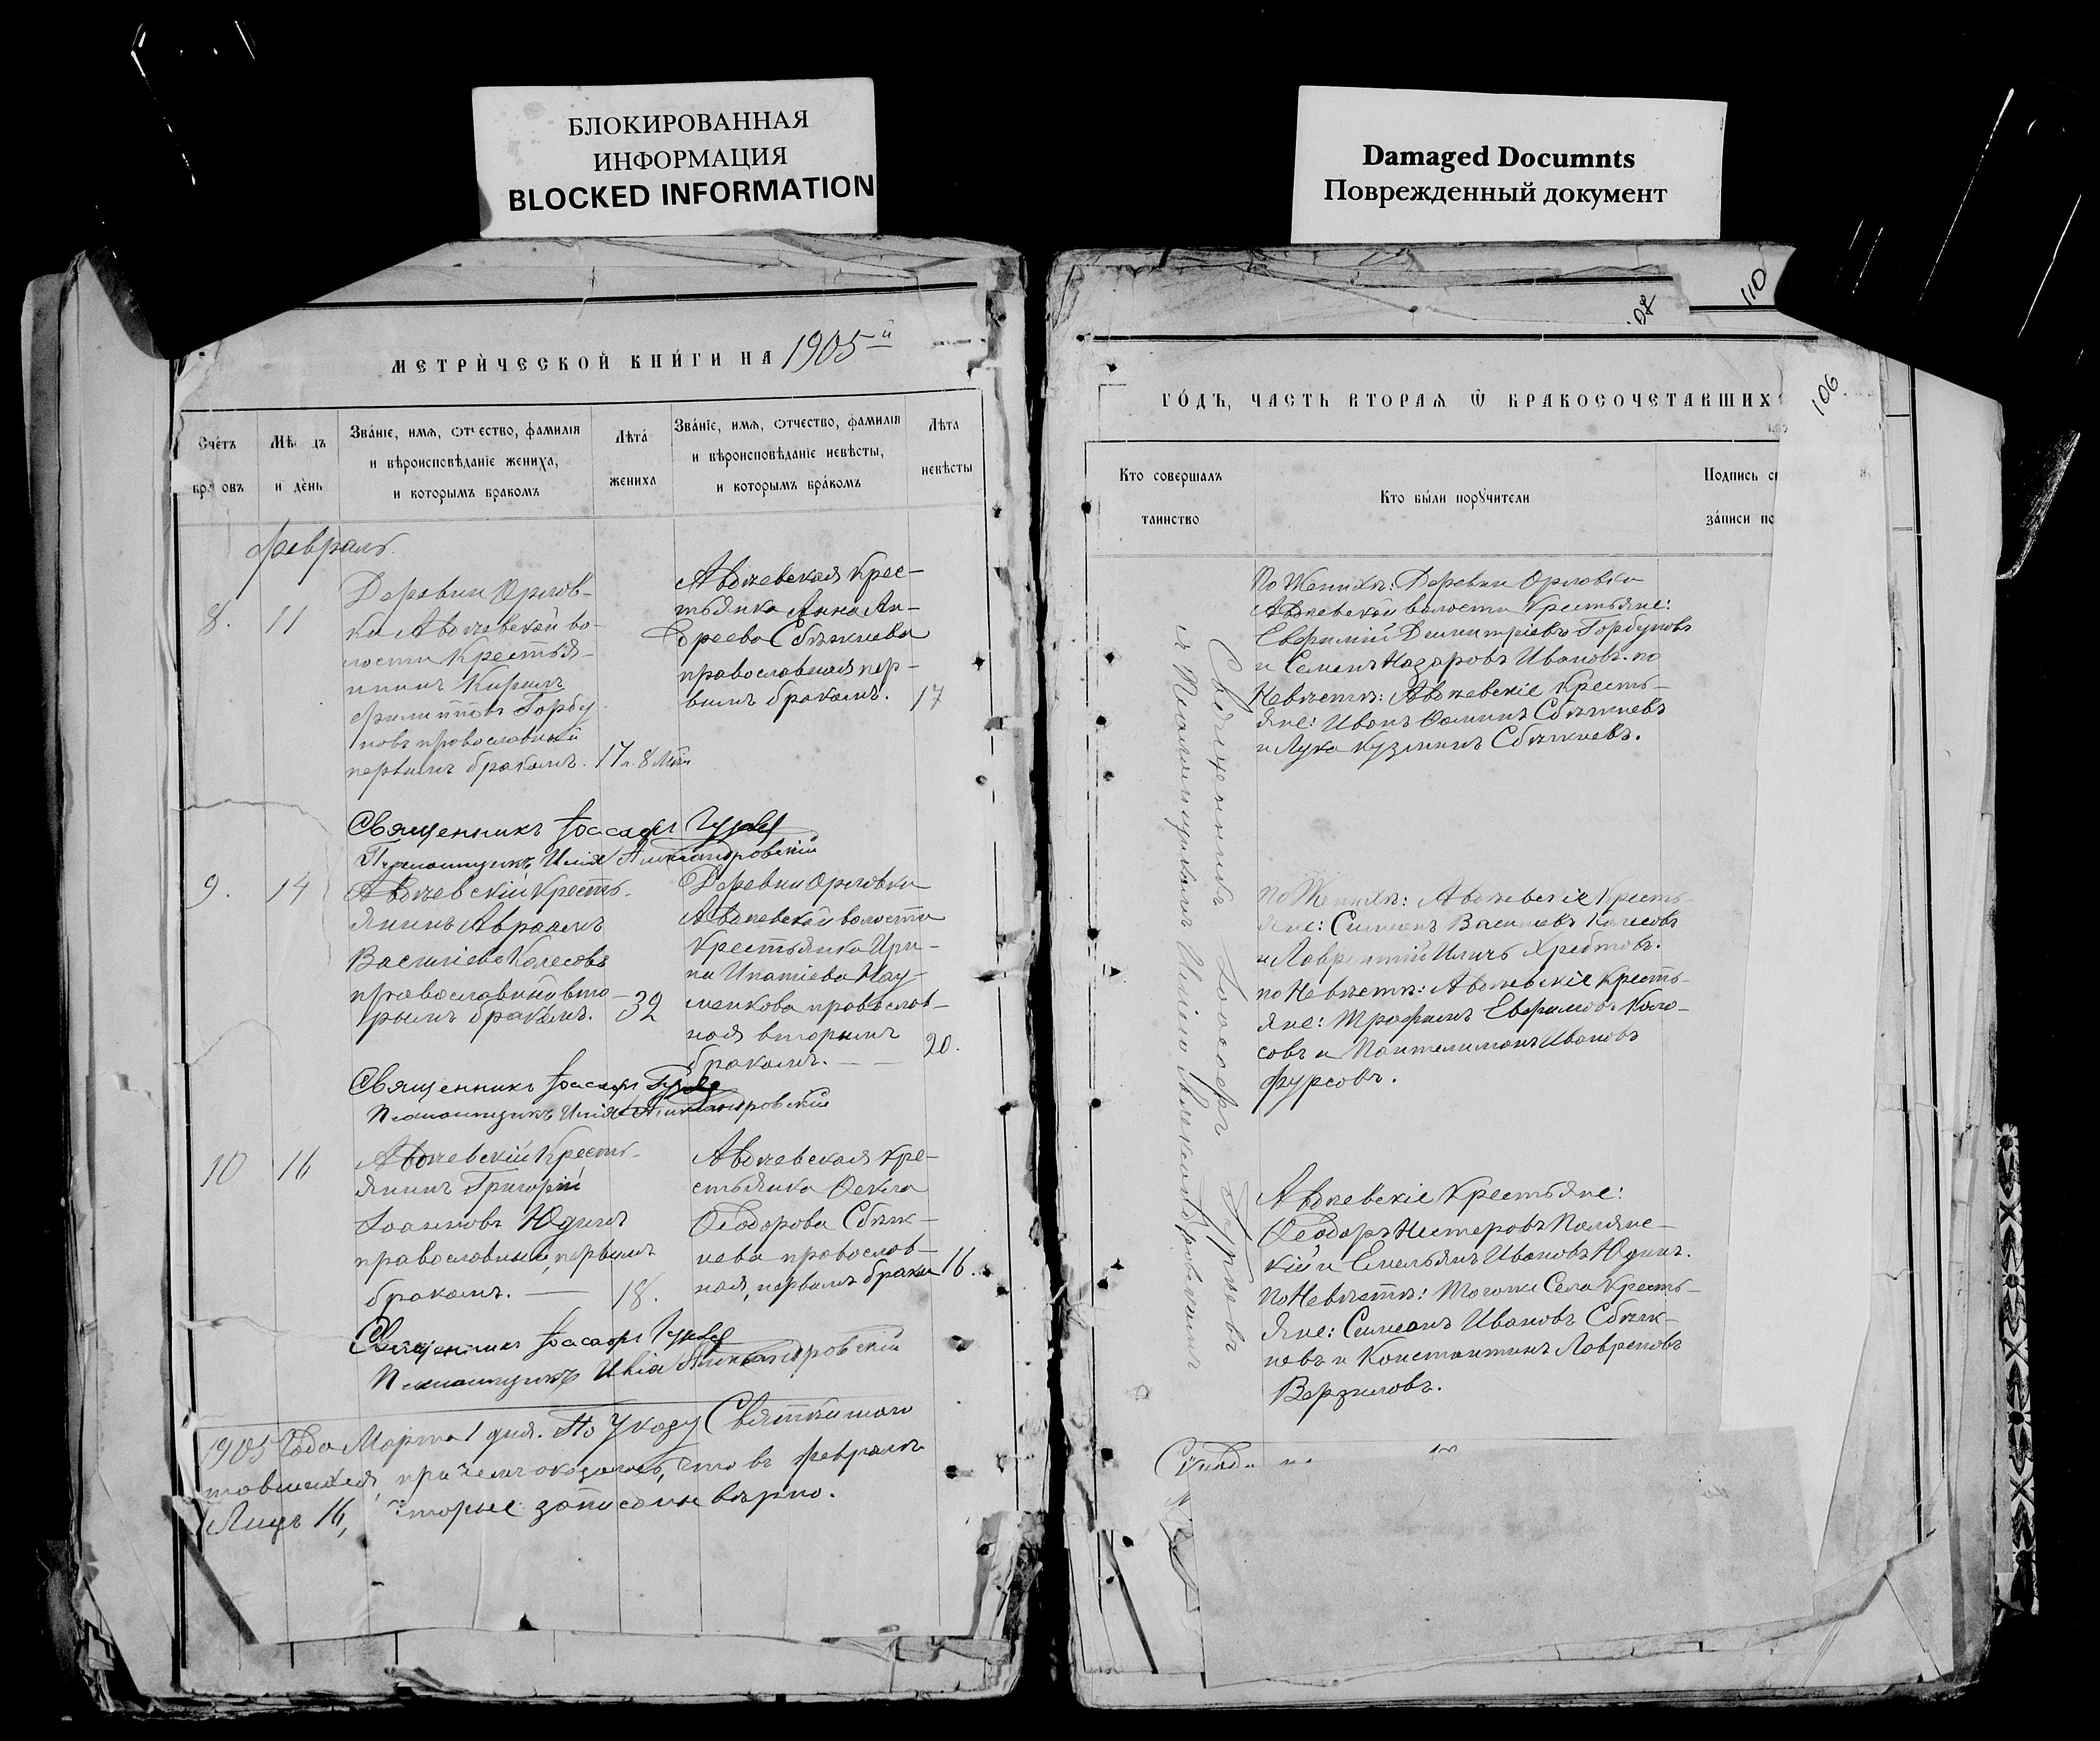 БЛОКИРОВАННАЯ
ИНФОРМАЦИЯ
BLOCKED INFORMATION
Damaged Documnts
Поврежденный документ
110
106
МЕТРИ́ЧЕСКОЙ КНИ́ГИ НА 1905й
Счетъ
бр овъ
Мѣ дъ
и день
Зва́нїе, имѧ, отчество, фамилїя
и вѣроисповѣданїе жениха,
и которымъ бракомъ
Лѣта
жениха
Зва́нїе, имѧ, отчество, фамилїя
и вѣроисповѣданїе невѣсты,
и которымъ бракомъ
Лѣта
невѣсты
Февраль.
8.
11
Деревни Орлов-
ки Авдѣевской во-
лости Крестья-
нинъ Кирилъ
Филипповъ Горбу
новъ православный
первымъ бракомъ.
17 л. 8 Мѣс
Крес-
тьянка Анна Ан-
дреева Сбѣжнева
православная пер-
вымъ бракомъ.
17
Священникъ Іоасафъ Гурьевъ
Псаломщикъ Илія Александровскій
9.
14
Крестъ-
янинъ Авраамъ
Василіевъ Колесовъ
православный вто-
рымъ бракомъ.
32
Деревни Орловки
волости
Крестьянка Ири-
на Ипатіева Нау-
менкова православ-
ная вторымъ
бракомъ.
20.
Священникъ Іоасафъ Гурьевъ
Псаломщикъ Илія Александровскій
10
16
Кресть-
янинъ Григорій
Іоанновъ Юдинъ
православный, первымъ
бракомъ.
18.
Кре-
стьянка Ѳекла
Ѳеодорова Сбѣж-
нева православ-
ная, первымъ бракомъ
16.
Священникъ Іоасафъ Гурьевъ
Псаломщикъ Илія Александровскій
1905 Года Марта 1 дня. По Указу Святѣйшаго
при чемъ оказалось, что въ февралѣ
Лицъ 16, которые записаны вѣрно.
ГО́ДЪ, ЧАСТЬ ВТОРАѦ Ѿ БРАКОСОЧЕТАВШИХ
Кто совершалъ
таинство
Кто бы́ли порꙋчители
Подпись с
за́писи по
Священникъ Іоасафъ Гурьевъ
съ Псаломщикомъ Иліею Александровскимъ
По Женихѣ: Деревни Орловки
волости Крестьяне:
Евфимій Димитріевъ Горбуновъ
и Семенъ Назаровъ Ивановъ. по
Невѣстѣ: Кресть-
яне: Иванъ Ѳоминъ Сбѣжневъ
и Лука Кузминъ Сбѣжневъ.
По Женихѣ: Кресть-
яне: Симеонъ Василіевъ Колесовъ
и Лаврентій Иличъ Хребтовъ.
по Невѣстѣ: Кресть-
яне: Трофимъ Евфимовъ Коло-
совъ и Пантелимонъ Ивановъ
Фурсовъ.
Крестьяне:
Ѳеодоръ Нестеровъ Полянс-
кій и Емельянъ Ивановъ Юдинъ.
По Невѣстѣ: Тогоже Села Кресть-
яне: Симеонъ Ивановъ Сбѣж-
невъ и Константинъ Лавреновъ
Верзиловъ.